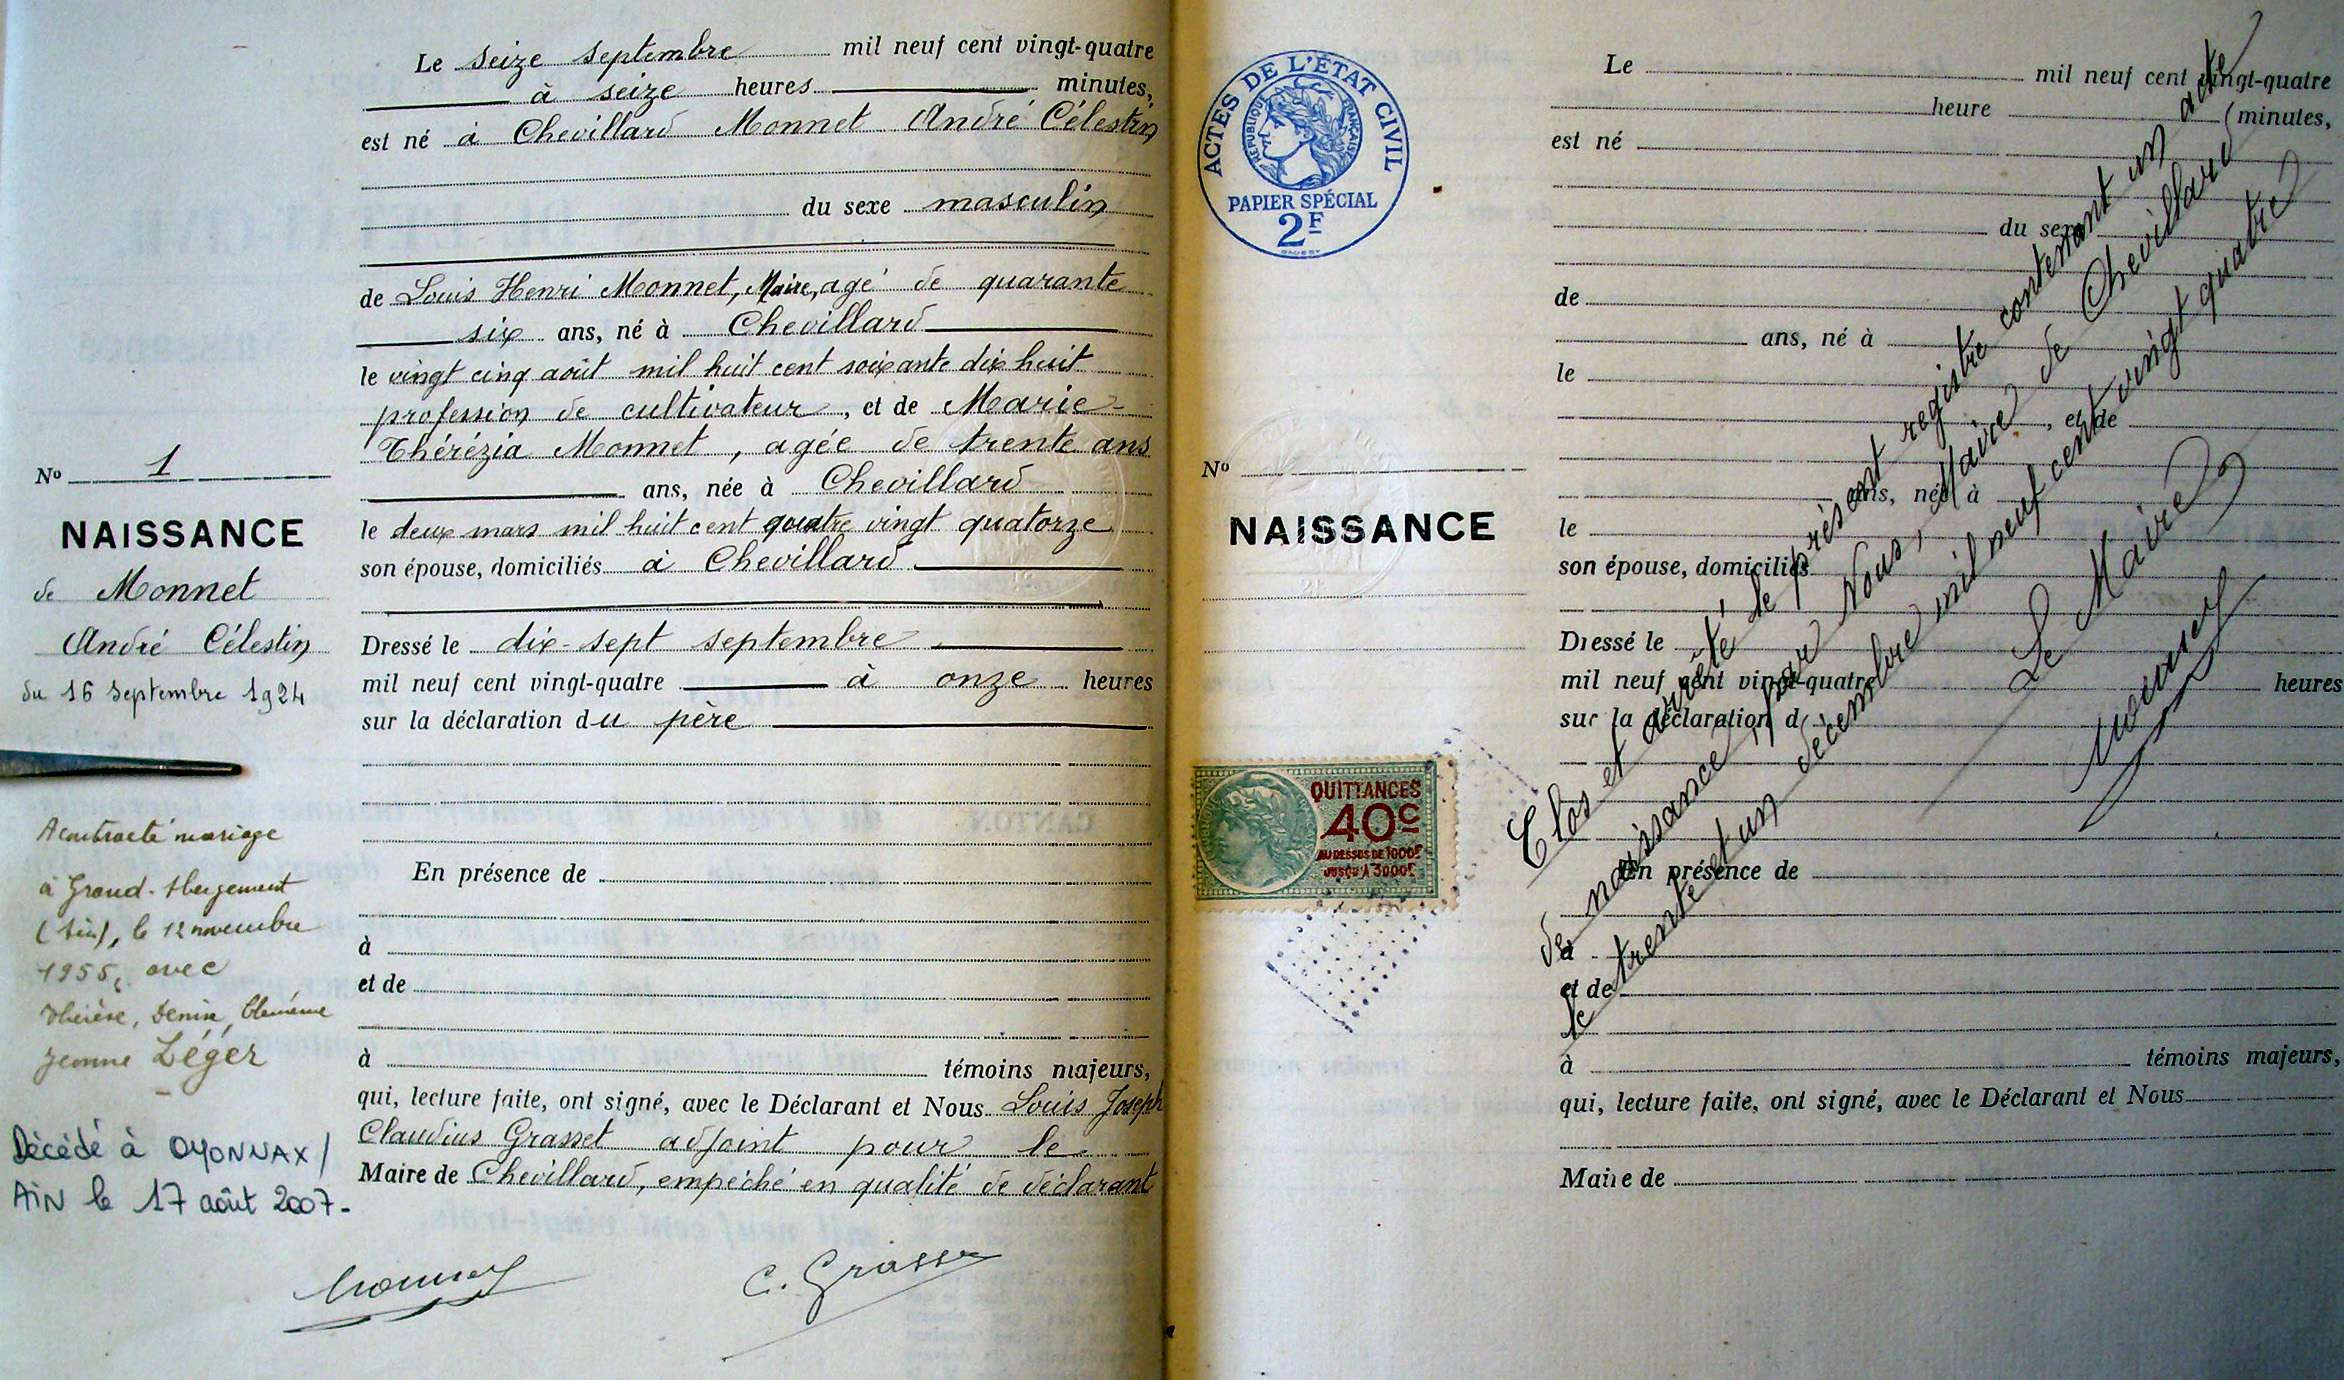 Le seize septembre mil neuf cent vingt-quatre
à seize heures minutes,
est né à Chevillard Monnet André Célestin
du sexe masculin
de Louis Henri Monnet, Maire, agé de quarante
six ans, né à Chevillard
le vingt cinq août mil huit cent soixante dix huit
profession de cultivateur, et de Marie
Thérézia Monnet, agée de trente ans
ans, née à Chevillard
le deux mars mil huit cent quatre vingt quatorze
son épouse, domiciliés à Chevillard
Dressé le dix-sept septembre
mil neuf cent vingt-quatre à onze heures
sur la déclaration du père
En présence de
à
et de
à témoins majeurs,
qui, lecture faite, ont signé, avec le Déclarant et Nous Louis Joseph
Claudius Grasset adjoint pour le
Maire de Chevillard, empéché en qualité de déclarant
Monnet
C. Grasset
No 1
NAISSANCE
de Monnet
André Célestin
du 16 Septembre 1924
A contracté mariage
à Grand-Abergement
(Ain), le 12 novembre
1955, avec
Thérèse, Denise, Clémence
Jeanne Léger
Décédé à OYONNAX /
AIN le 17 août 2007-
ACTES DE L'ÉTAT CIVIL
RÉPUBLIQUE FRANÇAISE
PAPIER SPÉCIAL
2F
No
NAISSANCE
QUITTANCES
40c
AU DESSUS DE 1000F
JUSQU'A 3000F
Le mil neuf cent vingt-quatre
heure minutes,
est né
du sexe
de
ans, né à
le
, et de
ans, née à
le
son épouse, domiciliés
Dressé le
mil neuf cent vingt-quatre heures
sur la déclaration d
En présence de
à
et de
à témoins majeurs,
qui, lecture faite, ont signé, avec le Déclarant et Nous
Maire de
Clos et arrêté le présent registre contenant un acte
de naissance, par Nous, Maire de Chevillard
le trente et un décembre mil neuf cent vingt quatre
Le Maire
Monnet